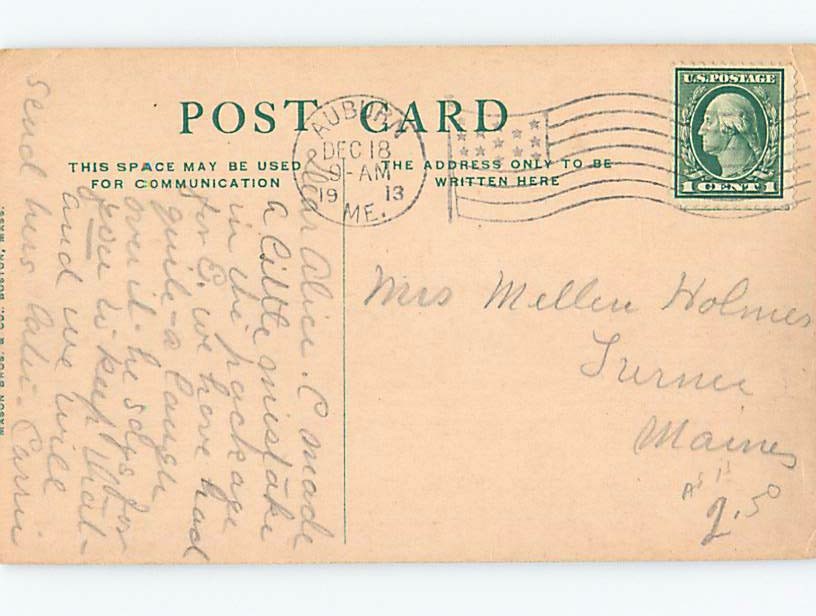 POST CARD
THIS SPACE MAY BE USED
FOR COMMUNICATION
THE ADDRESS ONLY TO BE
WRITTEN HERE
AUBURN
DEC 18
9-AM
19 13
ME.
U.S. POSTAGE
1 CENT 1
Mrs Mellen Holmes
Turner
Maine
As is
2.50
Dear Alice. C made
a little mistake
in the package
for E. we have had
quite a laugh
over it - he says for
you to keep that -
and we will
send hers later - Carrie
MASON BROS. & CO. BOSTON, MASS.